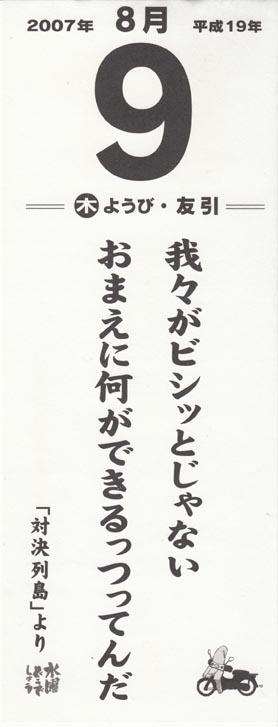 2007年 8月 平成19年
9
木ようび・友引
我々がビシッとじゃない
おまえに何ができるっつってんだ
「対決列島」より
水曜
どうで
しょう